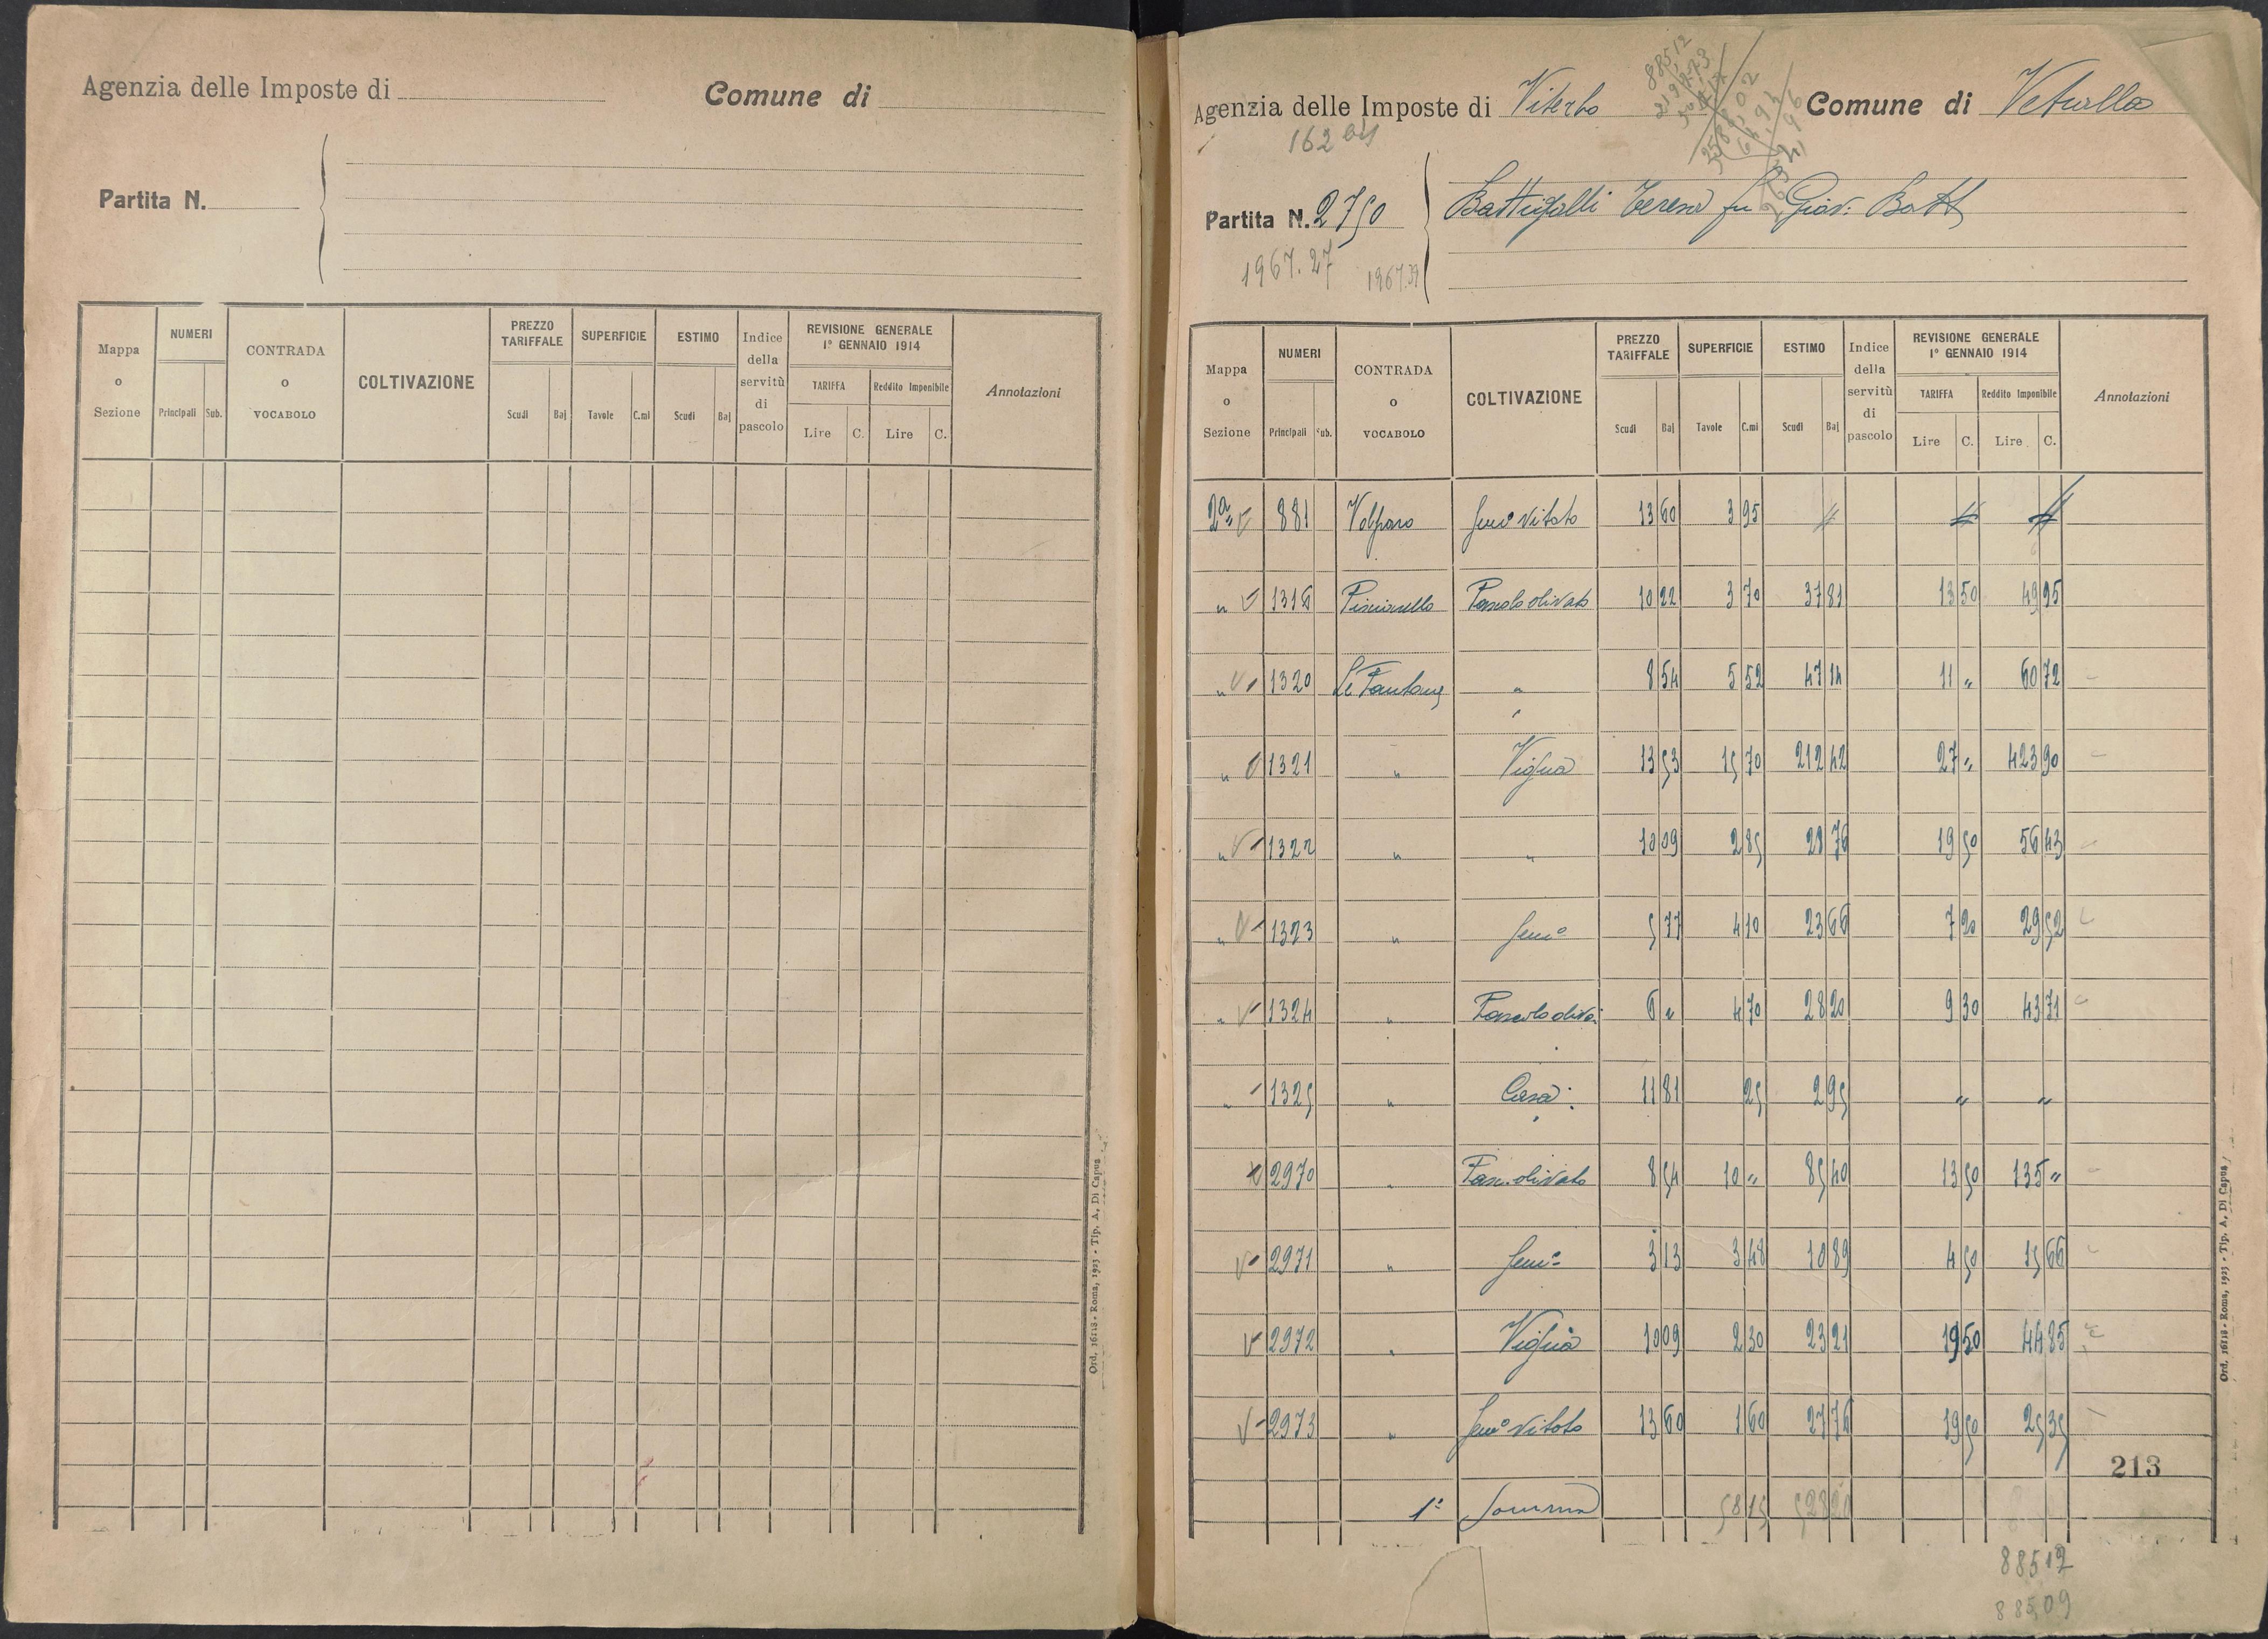 Agenzia delle Imposte di
Comune di
Partita N.
Mappa o Sezione
NUMERI
Principali
Sub.
CONTRADA o VOCABOLO
COLTIVAZIONE
PREZZO TARIFFALE
Scudi
Baj
SUPERFICIE
Tavole
C.mi
ESTIMO
Scudi
Baj
Indice della servitù di pascolo
REVISIONE GENERALE
1° GENNAIO 1914
TARIFFA
Lire
C.
Reddito Imponibile
Lire
C.
Annotazioni
Ord. 16118 - Roma, 1923 - Tip. A. Di Capua
Agenzia delle Imposte di Viterbo
Comune di Vetralla
162 04
Partita N. 2750
Battigalli Teresa fu Giov. Batt
1967.27
1967.39
Mappa o Sezione
NUMERI
Principali
Sub.
CONTRADA o VOCABOLO
COLTIVAZIONE
PREZZO TARIFFALE
Scudi
Baj
SUPERFICIE
Tavole
C.mi
ESTIMO
Scudi
Baj
Indice della servitù di pascolo
REVISIONE GENERALE
1° GENNAIO 1914
TARIFFA
Lire
C.
Reddito Imponibile
Lire
C.
Annotazioni
2a 881 Volparo Semo vitato 13 60 3 95 " " "
" 1316 Pascolo olivato 10 22 3 70 37 81 13 50 49 95
" 1320 Le Fontane " 8 54 5 52 47 14 11 " 60 72
" 1321 " Vigna 13 53 15 70 212 42 27 " 423 90
" 1322 " " 10 09 2 85 28 76 19 50 56 43
" 1323 " Semo 5 77 4 10 23 66 7 20 29 52
" 1324 " Pascolo oliva. 6 " 4 70 28 20 9 30 43 71
" 1325 " Casa 11 81 25 2 95 " "
2970 " Pasc. olivato 8 54 10 " 85 40 13 50 135 "
2971 " Semo 3 13 3 48 10 89 4 50 15 66
2972 " Vigna 10 09 2 30 23 21 19 50 44 85
2973 " Semo vitato 13 60 1 60 27 76 19 50 25 35
213
1a Somma 58 15
885 12
885 09
Ord. 16118 - Roma, 1923 - Tip. A. Di Capua